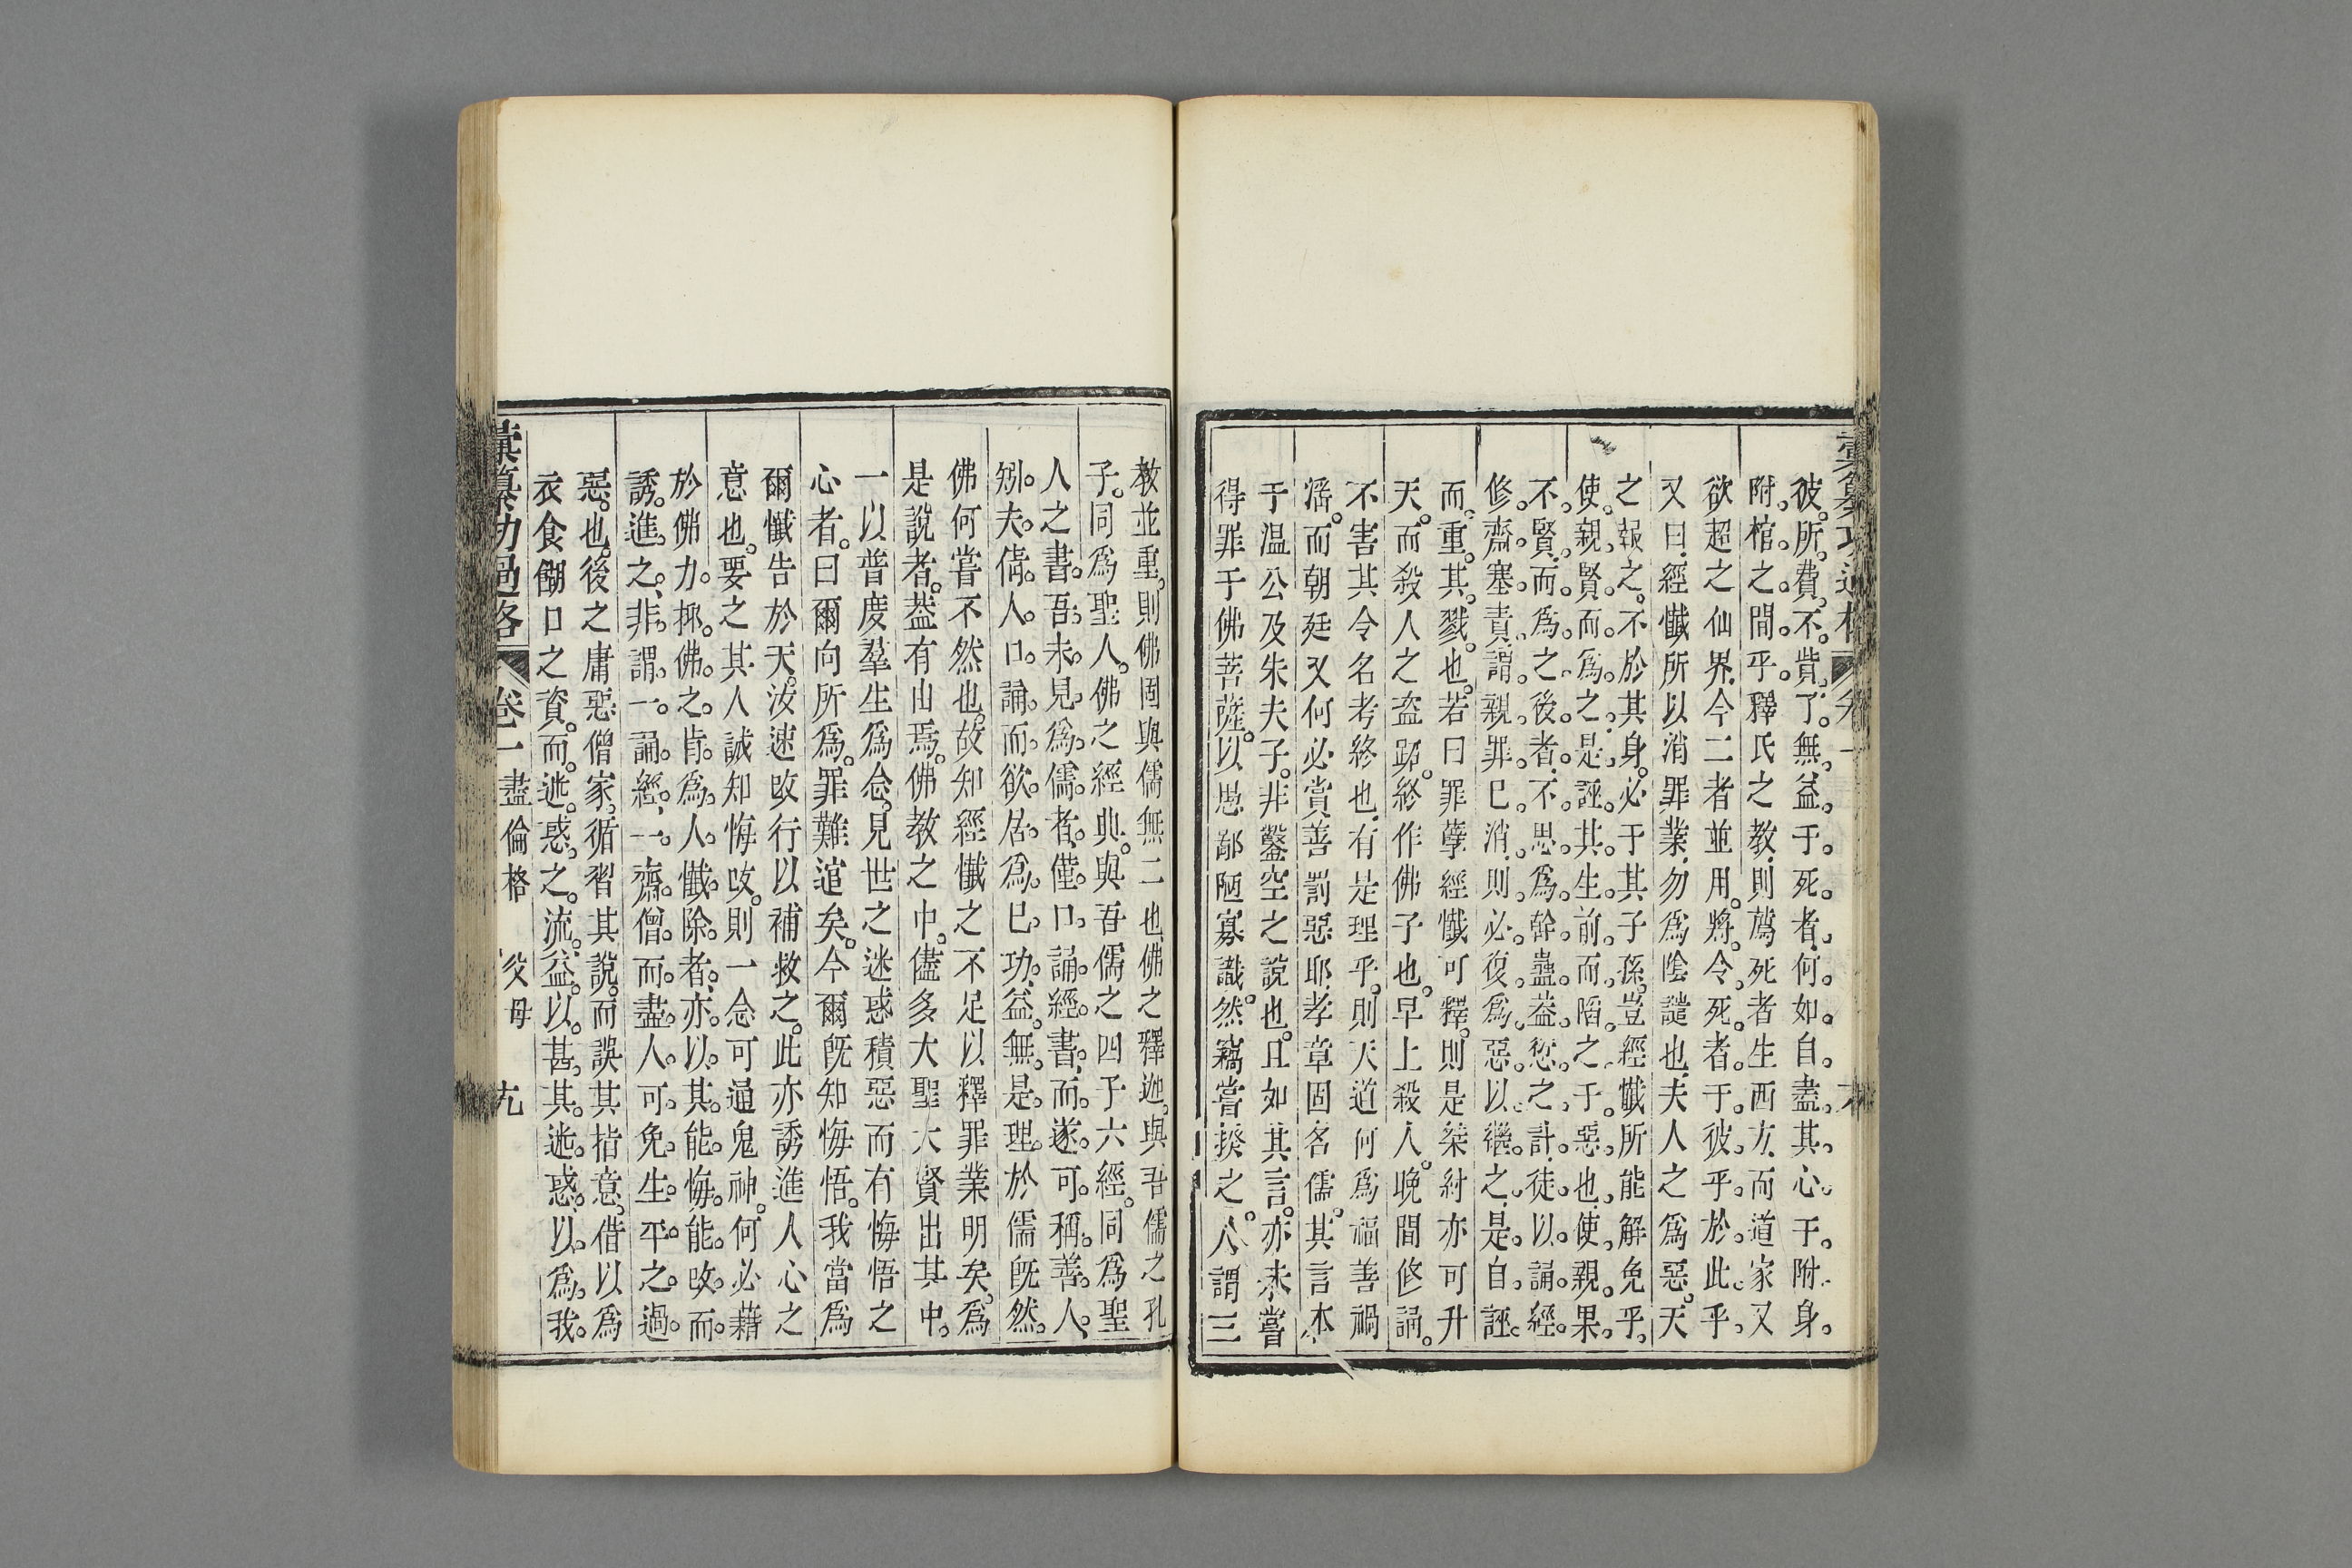 彼。所。費。不。貲。了。無。益。于。死。者。何。如。自。盡。其。心。于。附。身。
附。棺。之。間。乎。釋氏之教。則薦死者生西方。而道家又
欲超之仙界。今二者並用。將。令。死。者。于。彼。乎。於。此。乎。
又曰。經懺所以消罪業。勿爲陰譴也。夫人之爲惡。天
之報之。不於其身。必于其子孫。豈經懺所能解免乎。
使。親。賢。而。爲。之。是。誣。其。生。前。而。陷。之。于。惡。也。使。親。果。
不。賢。而。爲。之。後。者。不。思。爲。幹。蠱。葢。愆。之。計。徒。以。誦。經。
修。齋。塞。責。謂。親。罪。已。消。則。必。復。爲。惡。以。繼。之。是。自。誣。
而。重。其。戮。也。若曰罪孽經懺可釋。則是桀紂亦可升
天。而殺人之盜跖。終作佛子也。早上殺人。晚間修誦。
不害其令名考終也。有是理乎。則天道何爲福善禍
滛。而朝廷又何必賞善罰惡耶。孝章固名儒。其言本
于温公及朱夫子。非鑿空之說也。且如其言。亦未嘗
得罪于佛菩薩。以愚鄙陋寡識。然竊嘗揆之。人謂三
教並重。則佛固與儒無二也。佛之釋迦。與吾儒之孔
子。同爲聖人。佛之經典。與吾儒之四子六經。同爲聖
人之書。吾。未。見。爲。儒。者。僅。口。誦。經。書。而。遂。可。稱。善。人。
矧。夫。倩。人。口。誦。而。欲。居。爲。已。功。益。無。是。理。於儒旣然。
佛何嘗不然也。故知經懺之不足以釋罪業明矣。爲
是說者。葢有由焉。佛教之中。儘多大聖大賢出其中。
一以普度羣生爲念。見世之迷惑積惡而有悔悟之
心者。曰爾向所爲。罪難逭矣。今爾旣知悔悟。我當爲
爾懺告於天。汝速改行以補救之。此亦誘進人心之
意也。要之其人誠知悔改。則一念可通鬼神。何必藉
於佛力。抑。佛。之。肯。爲。人。懺。除。者。亦。以。其。能。悔。能。改。而。
誘。進。之。非。謂。一。誦。經。一。齋。僧。而。盡。人。可。免。生。平。之。過。
惡。也。後之庸惡僧家。循習其說。而誤其指意。借以爲
衣食餬口之資。而。迯。惑。之。流。益。以。甚。其。迯。惑。以。爲。我。
彙纂功過格 卷一 盡倫格 父母 九